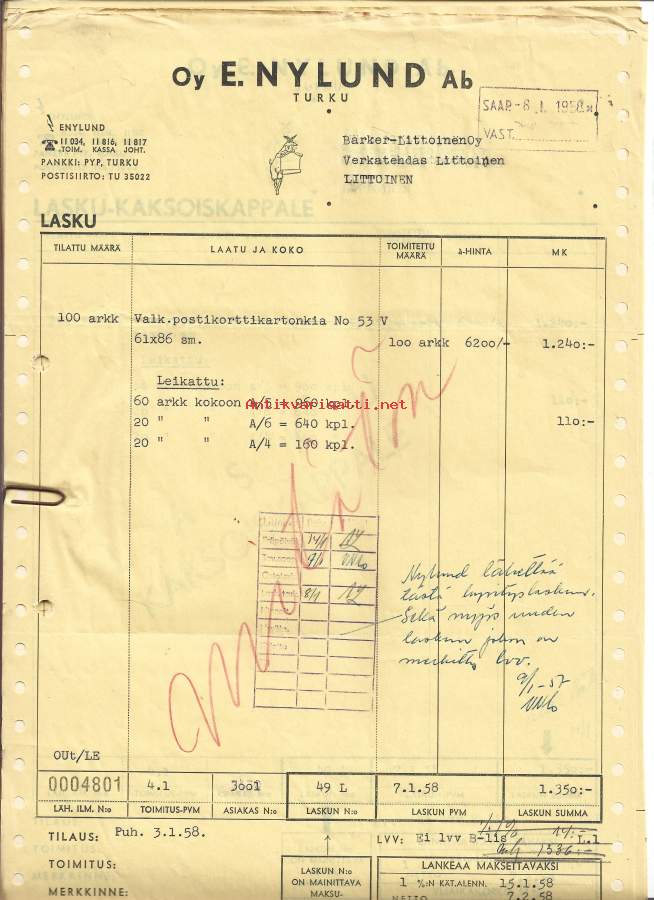 Oy E. NYLUND Ab
TURKU
SAAP. - 8 I. 1958
VAST.
ENYLUND
☎ 11 034, 11 816, 11 817
TOIM. KASSA JOHT.
PANKKI: PYP, TURKU
POSTISIIRTO: TU 35022
Barker-LittoinenOy
Verkatehdas Littoinen
LITTOINEN
LASKU-KAKSOISKAPPALE
LASKU
TILATTU MÄÄRÄ LAATU JA KOKO TOIMITETTU MÄÄRÄ à-HINTA MK
100 arkk Valk.postikorttikartonkia No 53 V
61x86 sm. 100 arkk 6200/- 1.240:-
Leikattu:
60 arkk kokoon A/5 = 960 kpl.
Antikvariaatti.net
20 " " A/6 = 640 kpl. 110:-
20 " " A/4 = 160 kpl.
Mitätön
14/1
9/1
8/1
Nylund lähettää
tästä hyvityslaskun.
Sekä myös uuden
laskun johon on
merkitty lvv.
9/1-57
OUt/LE
0004801 4.1 3001 49 L 7.1.58 1.350:-
LÄH. ILM. N:o TOIMITUS-PVM ASIAKAS N:o LASKUN N:o LASKUN PVM LASKUN SUMMA
TILAUS: Puh. 3.1.58. LVV: Ei lvv B-lis L.1
14:-
1336:-
TOIMITUS:
MERKKINNE:
LASKUN N:o
ON MAINITTAVA
MAKSU-
LANKEAA MAKSETTAVAKSI
1 %:N KÄT.ALENN. 15.1.58
NETTO 7.2.58